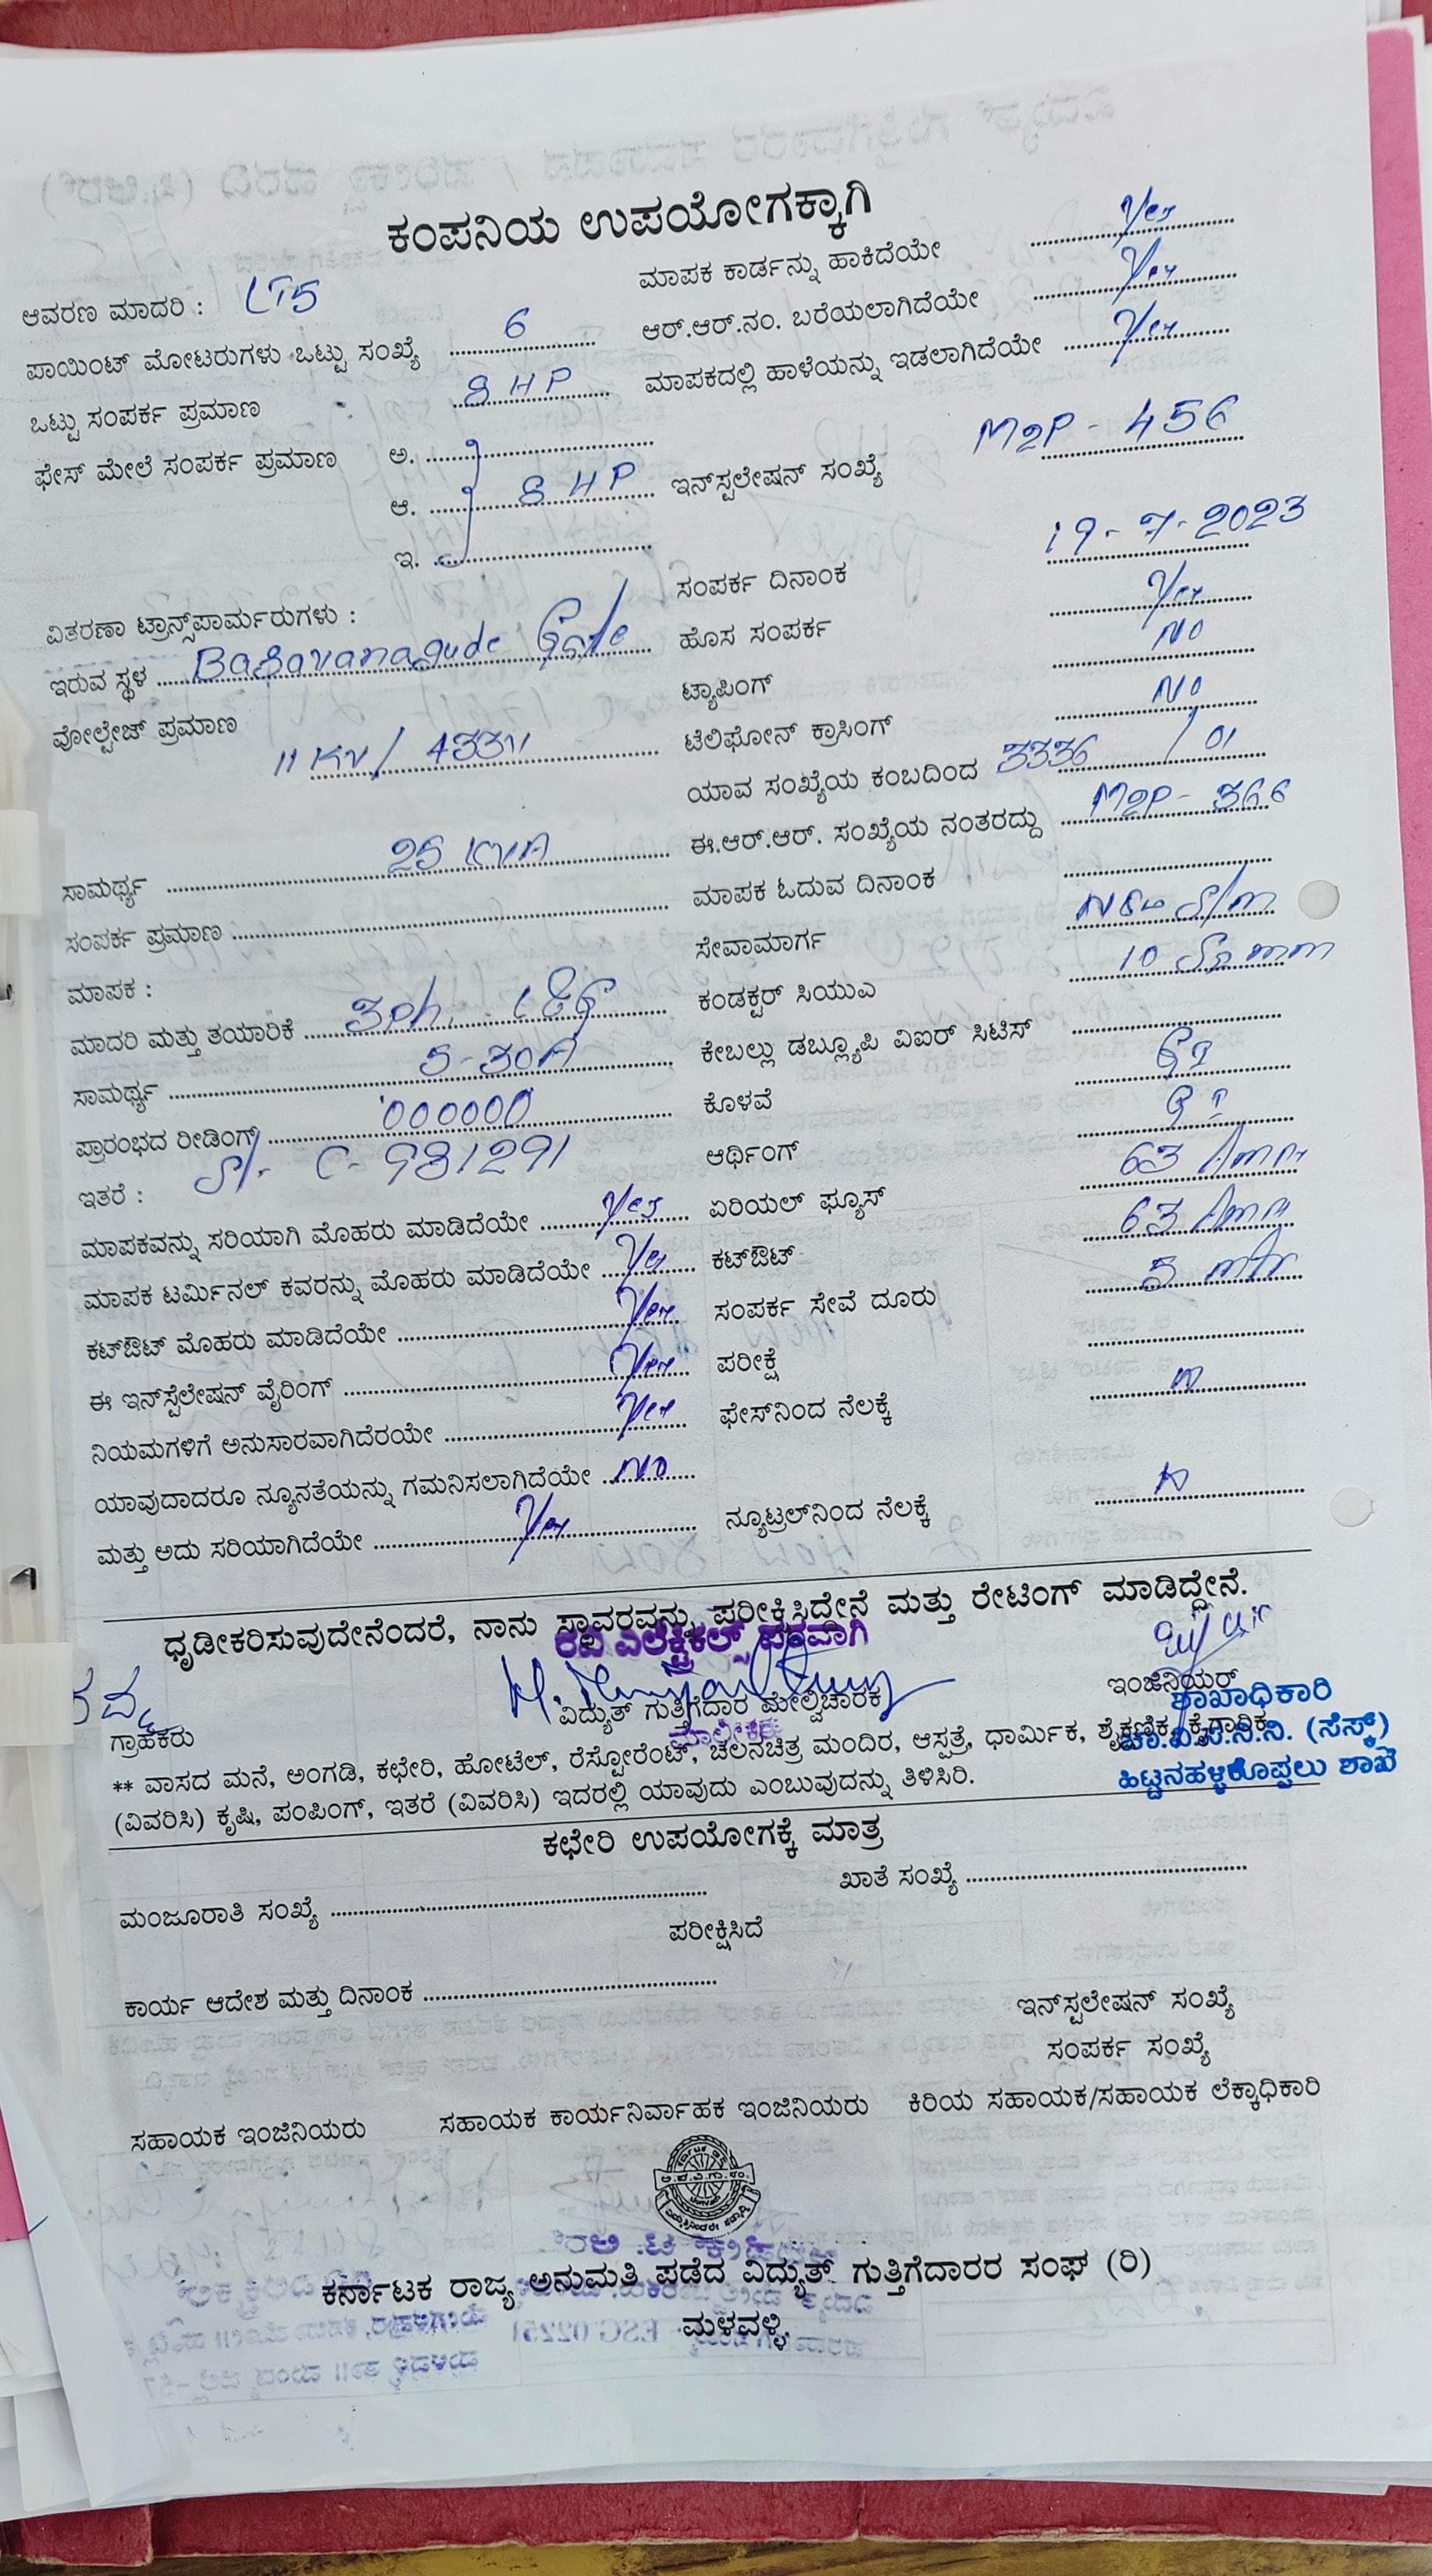 ಕಂಪನಿಯ ಉಪಯೋಗಕ್ಕಾಗಿ
ಆವರಣ ಮಾದರಿ : LT5
ಪಾಯಿಂಟ್ ಮೋಟರುಗಳು ಒಟ್ಟು ಸಂಖ್ಯೆ 6
ಒಟ್ಟು ಸಂಪರ್ಕ ಪ್ರಮಾಣ 8 HP
ಫೇಸ್ ಮೇಲೆ ಸಂಪರ್ಕ ಪ್ರಮಾಣ ಅ.
ಆ. 8 HP
ಇ.
ವಿತರಣಾ ಟ್ರಾನ್ಸ್‌ಪಾರ್ಮರುಗಳು :
ಇರುವ ಸ್ಥಳ Basavanagude Gate
ವೋಲ್ಟೇಜ್ ಪ್ರಮಾಣ 11 KV / 433V
ಸಾಮರ್ಥ್ಯ 25 KVA
ಸಂಪರ್ಕ ಪ್ರಮಾಣ
ಮಾಪಕ :
ಮಾದರಿ ಮತ್ತು ತಯಾರಿಕೆ 3ph. L&G
ಸಾಮರ್ಥ್ಯ 5-30A
ಪ್ರಾರಂಭದ ರೀಡಿಂಗ್ 000000
ಇತರೆ : Sl. C-981291
ಮಾಪಕವನ್ನು ಸರಿಯಾಗಿ ಮೊಹರು ಮಾಡಿದೆಯೇ Yes
ಮಾಪಕ ಟರ್ಮಿನಲ್ ಕವರನ್ನು ಮೊಹರು ಮಾಡಿದೆಯೇ Yes
ಕಟ್‌ಔಟ್ ಮೊಹರು ಮಾಡಿದೆಯೇ Yes
ಈ ಇನ್‌ಸ್ಟೆಲೇಷನ್ ವೈರಿಂಗ್ Yes
ನಿಯಮಗಳಿಗೆ ಅನುಸಾರವಾಗಿದೆರಯೇ Yes
ಯಾವುದಾದರೂ ನ್ಯೂನತೆಯನ್ನು ಗಮನಿಸಲಾಗಿದೆಯೇ No
ಮತ್ತು ಅದು ಸರಿಯಾಗಿದೆಯೇ Yes
ಮಾಪಕ ಕಾರ್ಡನ್ನು ಹಾಕಿದೆಯೇ Yes
ಆರ್.ಆರ್.ನಂ. ಬರೆಯಲಾಗಿದೆಯೇ Yes
ಮಾಪಕದಲ್ಲಿ ಹಾಳೆಯನ್ನು ಇಡಲಾಗಿದೆಯೇ Yes
ಇನ್‌ಸ್ಟಲೇಷನ್ ಸಂಖ್ಯೆ M2P - 456
ಸಂಪರ್ಕ ದಿನಾಂಕ 19-7-2023
ಹೊಸ ಸಂಪರ್ಕ Yes
ಟ್ಯಾಪಿಂಗ್ NO
ಟೆಲಿಫೋನ್ ಕ್ರಾಸಿಂಗ್ NO
ಯಾವ ಸಂಖ್ಯೆಯ ಕಂಬದಿಂದ 3336 / 01
ಈ.ಆರ್.ಆರ್. ಸಂಖ್ಯೆಯ ನಂತರದ್ದು M2P - 366
ಮಾಪಕ ಓದುವ ದಿನಾಂಕ
ಸೇವಾಮಾರ್ಗ S/m
ಕಂಡಕ್ಟರ್ ಸಿಯುಎ 10 Sq mm
ಕೇಬಲ್ಲು ಡಬ್ಲ್ಯೂಪಿ ವಿಐರ್ ಸಿಟಿಸ್
ಕೊಳವೆ GI
ಆರ್ಥಿಂಗ್ GI
ಏರಿಯಲ್ ಫ್ಯೂಸ್ 63 Amp
ಕಟ್‌ಔಟ್ 63 Amp
ಸಂಪರ್ಕ ಸೇವೆ ದೂರು 5 mtr
ಪರೀಕ್ಷೆ
ಫೇಸ್‌ನಿಂದ ನೆಲಕ್ಕೆ
ನ್ಯೂಟ್ರಲ್‌ನಿಂದ ನೆಲಕ್ಕೆ
ಧೃಡೀಕರಿಸುವುದೇನೆಂದರೆ, ನಾನು ಸ್ಥಾವರವನ್ನು ಪರೀಕ್ಷಿಸಿದ್ದೇನೆ ಮತ್ತು ರೇಟಿಂಗ್ ಮಾಡಿದ್ದೇನೆ.
ರವಿ ಎಲೆಕ್ಟ್ರಿಕಲ್ಸ್ ಪರವಾಗಿ
ಗ್ರಾಹಕರು ವಿದ್ಯುತ್ ಗುತ್ತಿಗೆದಾರ ಮೇಲ್ವಿಚಾರಕ ಇಂಜಿನಿಯರ್
ಮಾಲೀಕರು
ಶಾಖಾಧಿಕಾರಿ
ಚಾ.ವಿ.ಸ.ನಿ.ನಿ. (ಸೆಸ್ಕ್)
ಹಿಟ್ಟನಹಳ್ಳಿಕೊಪ್ಪಲು ಶಾಖೆ
** ವಾಸದ ಮನೆ, ಅಂಗಡಿ, ಕಛೇರಿ, ಹೋಟೆಲ್, ರೆಸ್ಟೋರೆಂಟ್, ಚಲನಚಿತ್ರ ಮಂದಿರ, ಆಸ್ಪತ್ರೆ, ಧಾರ್ಮಿಕ, ಶೈಕ್ಷಣಿಕ, ಕೈಗಾರಿಕ
(ವಿವರಿಸಿ) ಕೃಷಿ, ಪಂಪಿಂಗ್, ಇತರೆ (ವಿವರಿಸಿ) ಇದರಲ್ಲಿ ಯಾವುದು ಎಂಬುವುದನ್ನು ತಿಳಿಸಿರಿ.
ಕಛೇರಿ ಉಪಯೋಗಕ್ಕೆ ಮಾತ್ರ
ಮಂಜೂರಾತಿ ಸಂಖ್ಯೆ ಖಾತೆ ಸಂಖ್ಯೆ
ಪರೀಕ್ಷಿಸಿದೆ
ಕಾರ್ಯ ಆದೇಶ ಮತ್ತು ದಿನಾಂಕ
ಇನ್‌ಸ್ಟಲೇಷನ್ ಸಂಖ್ಯೆ
ಸಂಪರ್ಕ ಸಂಖ್ಯೆ
ಸಹಾಯಕ ಇಂಜಿನಿಯರು ಸಹಾಯಕ ಕಾರ್ಯನಿರ್ವಾಹಕ ಇಂಜಿನಿಯರು ಕಿರಿಯ ಸಹಾಯಕ/ಸಹಾಯಕ ಲೆಕ್ಕಾಧಿಕಾರಿ
ಕರ್ನಾಟಕ ರಾಜ್ಯ ಅನುಮತಿ ಪಡೆದ ವಿದ್ಯುತ್ ಗುತ್ತಿಗೆದಾರರ ಸಂಘ (ರಿ)
ಮಳವಳ್ಳಿ.